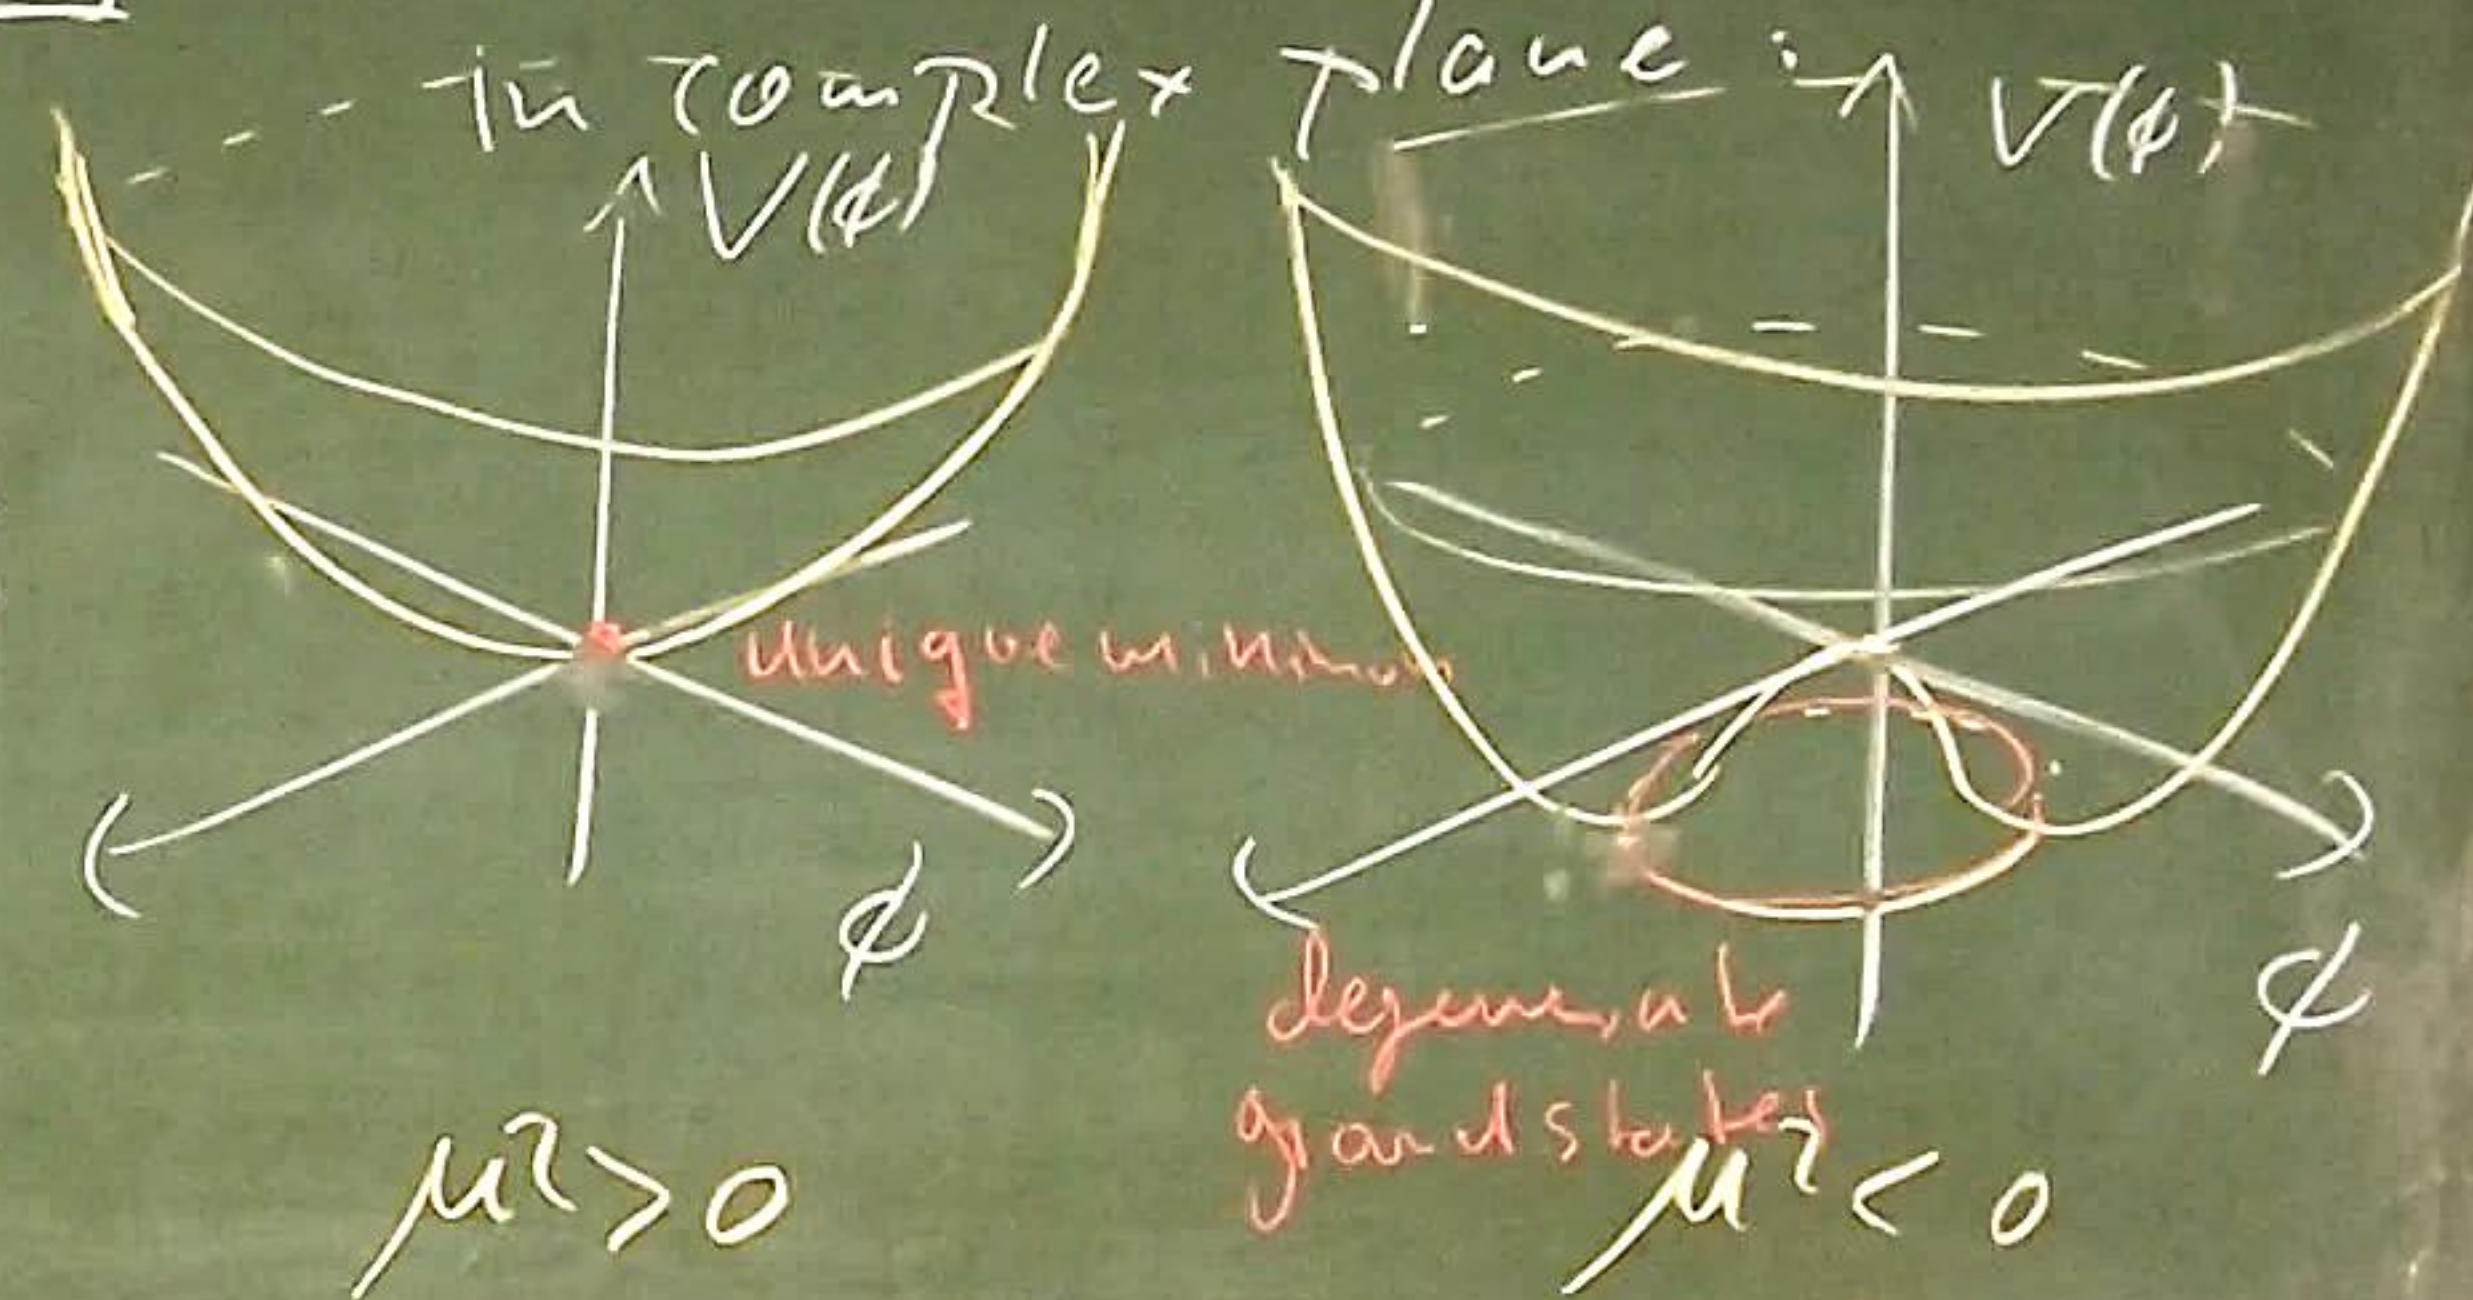 in complex plane :
V(φ)
V(φ)
unique minimum
φ
φ
degenerate
ground states
μ² > 0
μ² < 0